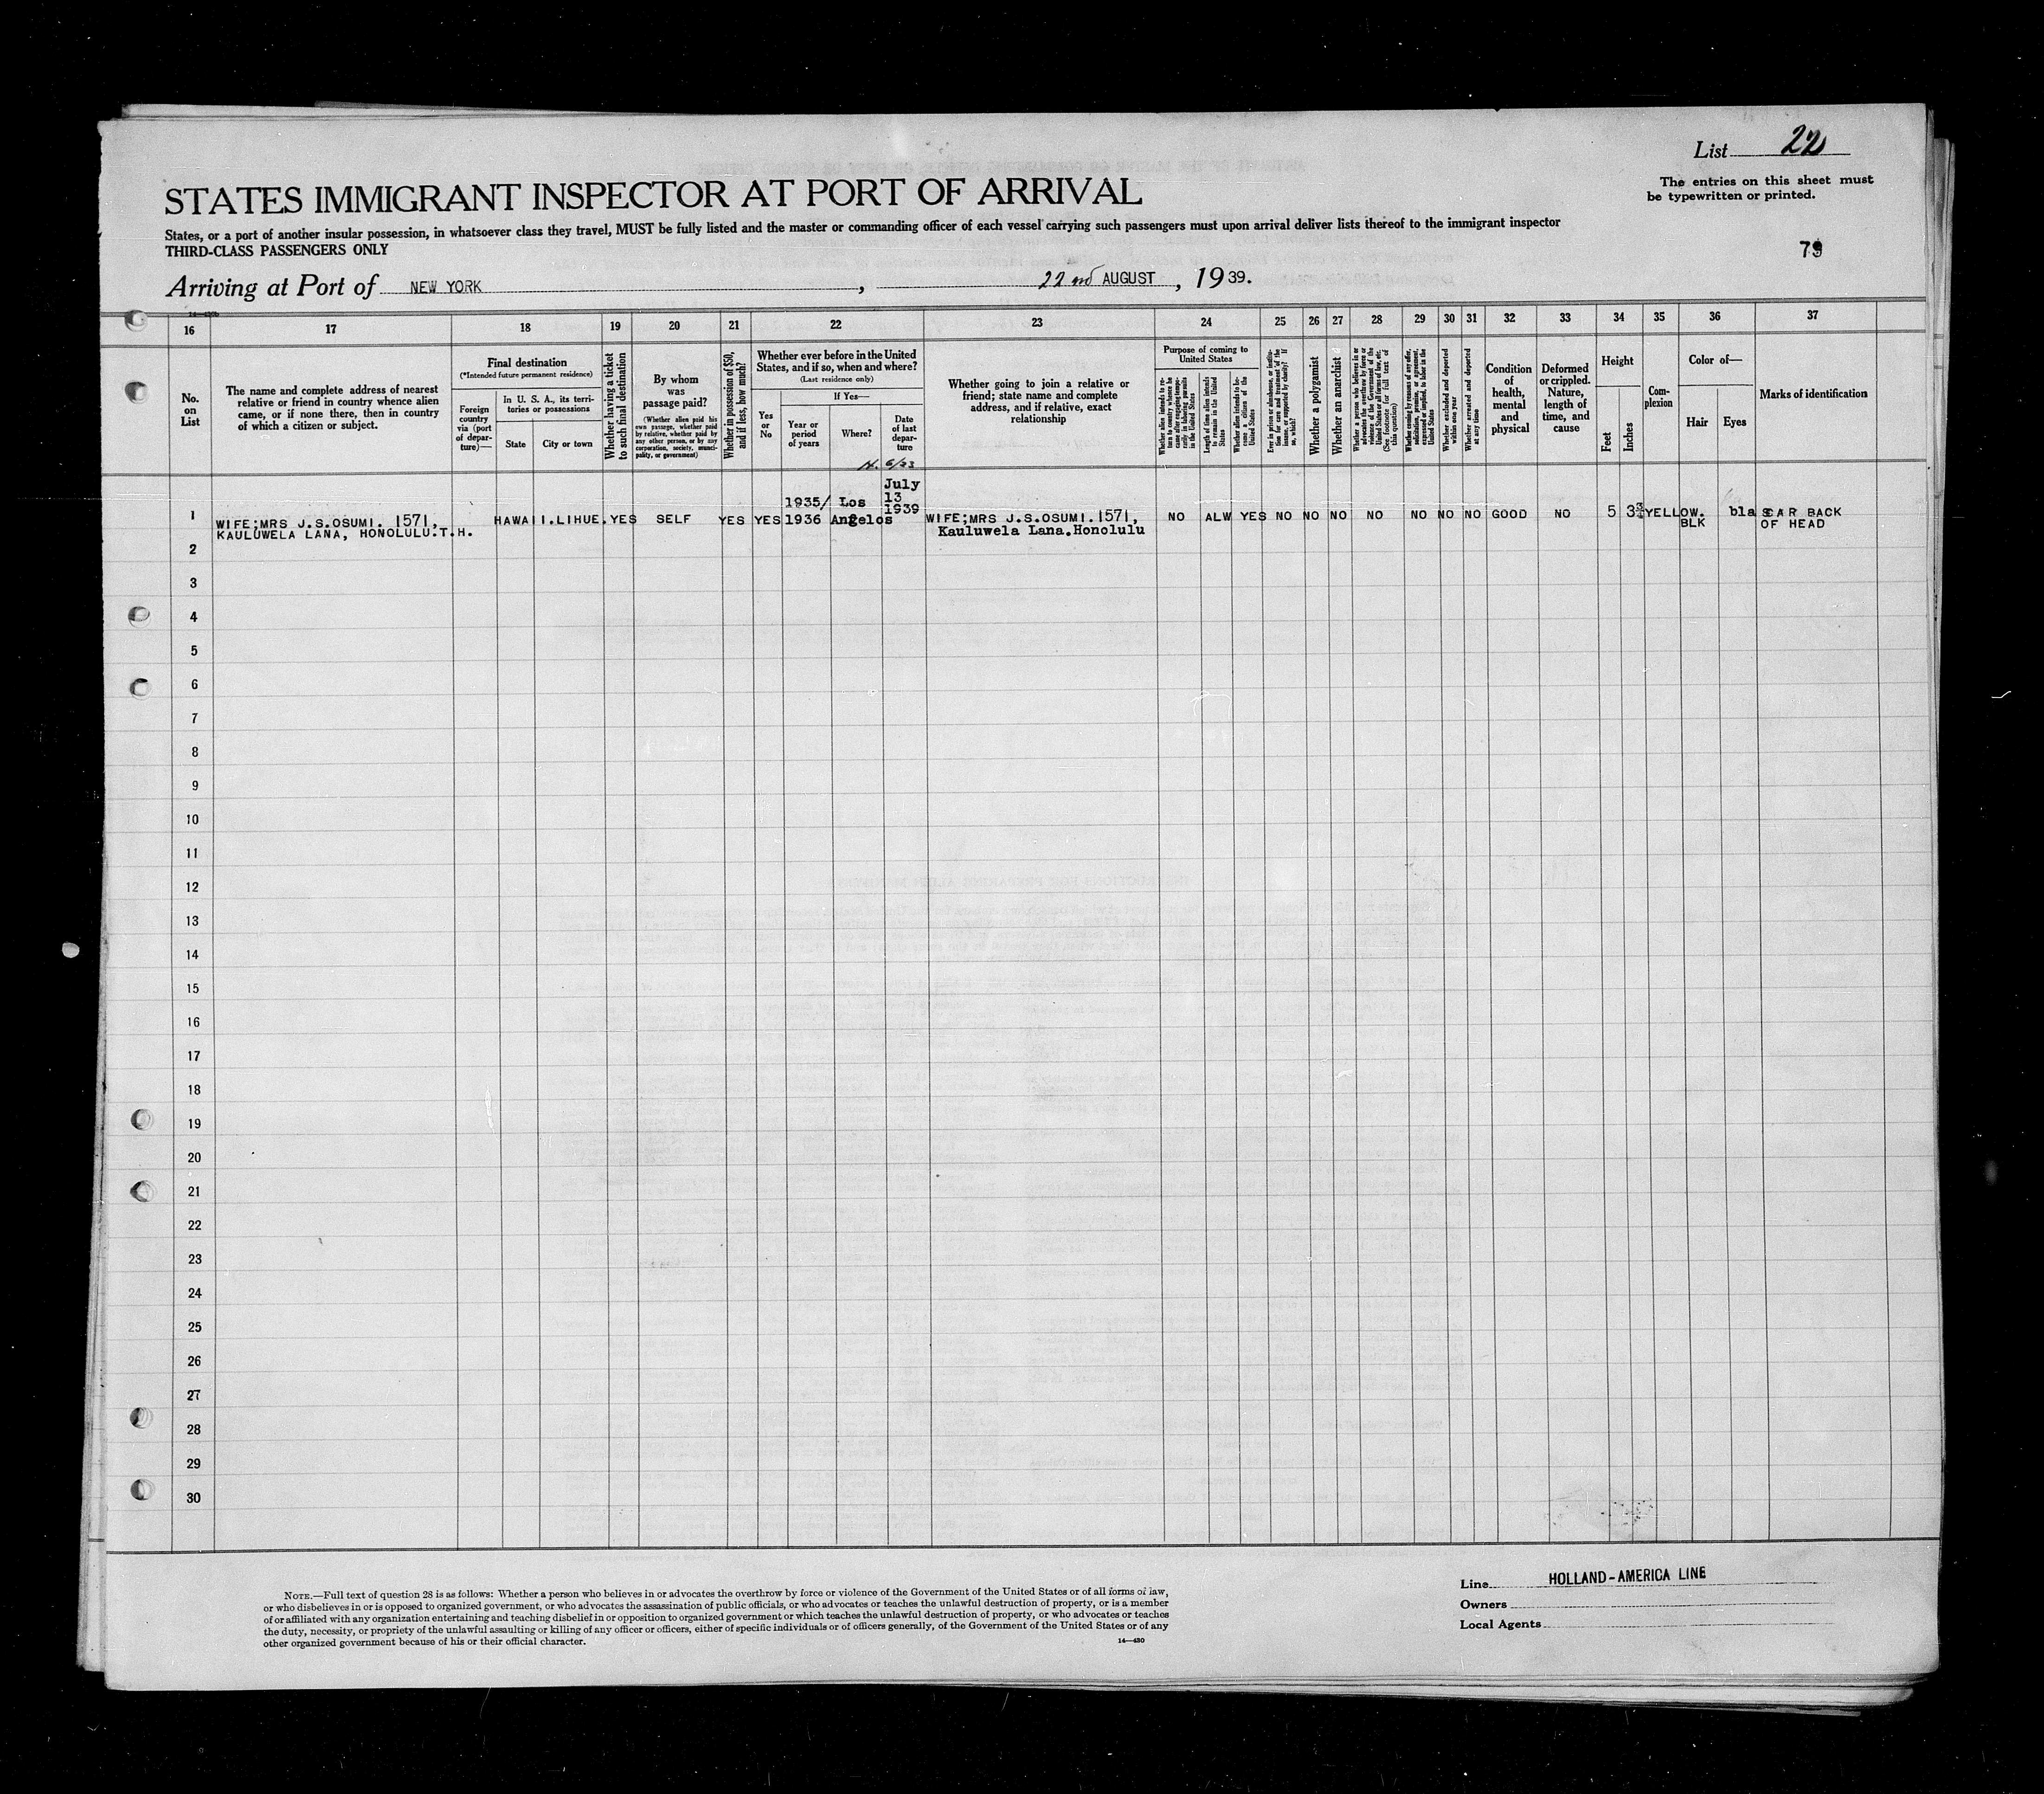 List 22
STATES IMMIGRANT INSPECTOR AT PORT OF ARRIVAL
The entries on this sheet must
be typewritten or printed.
States, or a port of another insular possession, in whatsoever class they travel, MUST be fully listed and the master or commanding officer of each vessel carrying such passengers must upon arrival deliver lists thereof to the immigrant inspector
THIRD-CLASS PASSENGERS ONLY
79
Arriving at Port of NEW YORK, 22nd AUGUST, 1939.
16 17 18 19 20 21 22 23 24 25 26 27 28 29 30 31 32 33 34 35 36 37
No.
on
List
The name and complete address of nearest
relative or friend in country whence alien
came, or if none there, then in country
of which a citizen or subject.
Final destination
(*Intended future permanent residence)
Foreign
country
via (port
of depar-
ture)—
In U. S. A., its terri-
tories or possessions
State
City or town
Whether having a ticket
to such final destination
By whom
was
passage paid?
(Whether alien paid his
own passage, whether paid
by relative, whether paid by
any other person, or by any
corporation, society, munici-
pality, or government)
Whether in possession of $50,
and if less, how much?
Whether ever before in the United
States, and if so, when and where?
(Last residence only)
Yes
or
No
If Yes—
Year or
period
of years
Where?
Date
of last
depar-
ture
Whether going to join a relative or
friend; state name and complete
address, and if relative, exact
relationship
Purpose of coming to
United States
Whether alien intends to re-
turn to country whence he
came after engaging tempo-
rarily in laboring pursuits
in the United States
Length of time alien intends
to remain in the United
States
Whether alien intends to be-
come a citizen of the
United States
Ever in prison or almshouse, or institu-
tion for care and treatment of the
insane, or supported by charity? If
so, which?
Whether a polygamist
Whether an anarchist
Whether a person who believes in or
advocates the overthrow by force or
violence of the Government of the
United States or all forms of law, etc.
(See footnote for full text of
this question)
Whether coming by reasons of any offer,
solicitation, promise, or agreement,
expressed or implied, to labor in the
United States
Whether excluded and deported
within one year
Whether arrested and deported
at any time
Condition
of
health,
mental
and
physical
Deformed
or crippled.
Nature,
length of
time, and
cause
Height
Feet
Inches
Com-
plexion
Color of—
Hair
Eyes
Marks of identification
1
WIFE;MRS J.S.OSUMI. 1571,
KAULUWELA LANA, HONOLULU.T.H.
HAWAII.LIHUE.YES SELF YES YES
1935/
1936
Los
Angelos
July
13
1939
WIFE;MRS J.S.OSUMI.1571,
Kauluwela Lana.Honolulu
NO ALW YES NO NO NO NO NO NO NO GOOD NO 5 3 YELLOW.
BLK
bla
SCAR BACK
OF HEAD
2
3
4
5
6
7
8
9
10
11
12
13
14
15
16
17
18
19
20
21
22
23
24
25
26
27
28
29
30
NOTE.—Full text of question 28 is as follows: Whether a person who believes in or advocates the overthrow by force or violence of the Government of the United States or of all forms of law,
or who disbelieves in or is opposed to organized government, or who advocates the assassination of public officials, or who advocates or teaches the unlawful destruction of property, or is a member
of or affiliated with any organization entertaining and teaching disbelief in or opposition to organized government or which teaches the unlawful destruction of property, or who advocates or teaches
the duty, necessity, or propriety of the unlawful assaulting or killing of any officer or officers, either of specific individuals or of officers generally, of the Government of the United States or of any
other organized government because of his or their official character.
14—430
Line HOLLAND-AMERICA LINE
Owners
Local Agents